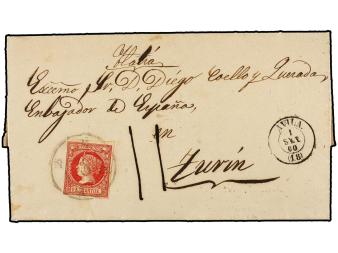 Italia
Excmo. Sr. D. Diego Coello y Quesada,
Enbajador de España,
en
Turin
AVILA.
1
SET
60
(18)